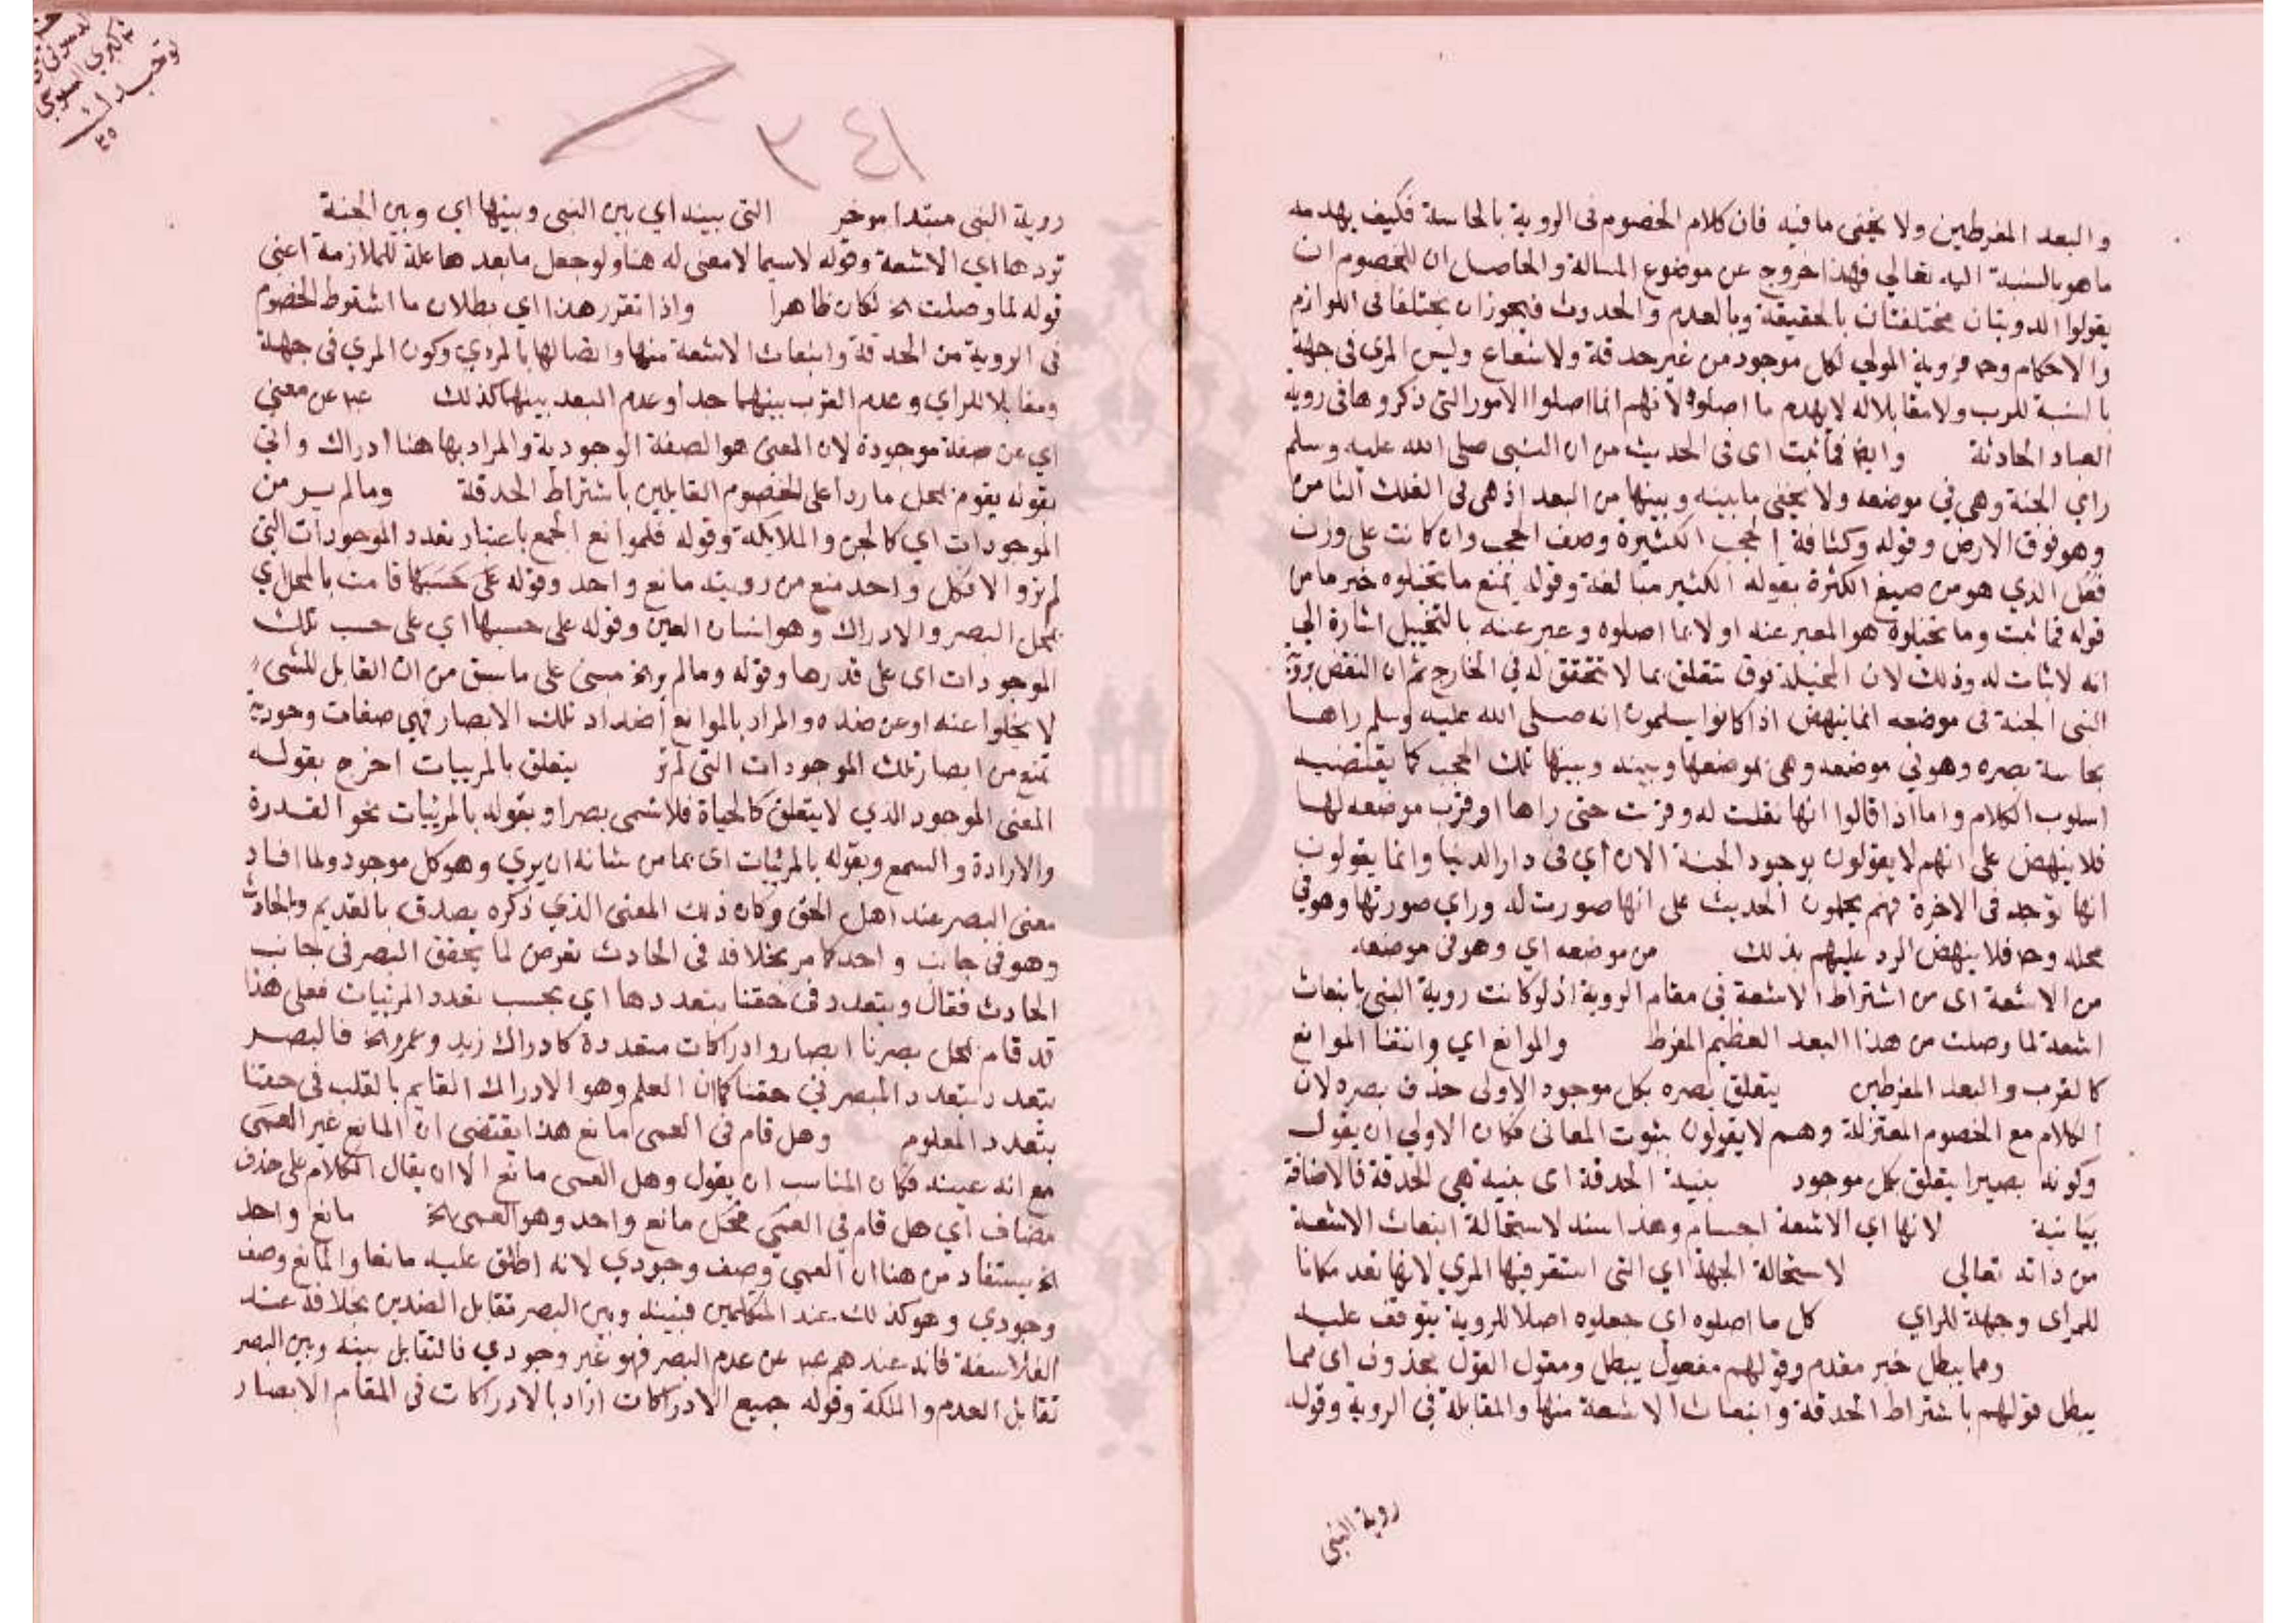 والبعد المفرطين ولا يخفى ما فيه فان كلام الخصوم فى الروية بالحاسة فكيف يهدمه
ما هو بالنسبة اليه تعالى فهذا خروج عن موضوع المسالة والحاصل ان للخصوم ان
يقولوا الرويتان مختلفتان بالحقيقة وبالعدم والحدوث فيجوز ان يختلفا فى اللوازم
والاحكام وح فروية المولى لكل موجود من غير حدقة ولا شعاع وليس المرى فى جهة
بالنسبة للرب ولا مقابلا له لا يهدم ما اصلوه لانهم انما اصلوا الامور التى ذكروها فى روية
العباد الحادثة وايضا فما ثبت اى فى الحديث من ان النبى صلى الله عليه وسلم
راى الجنة وهى في موضعه ولا يخفى ما بينه وبينها من البعد اذ هى فى الفلك الثامن
وهو فوق الارض وقوله وكثافة الحجب الكثيرة وصف الحجب وان كانت على وزن
فعل الذي هو من صيغ الكثرة بقوله الكثير مبالغة وقوله يمنع ما تخيلوه خبر ما من
قوله فما ثبت وما تخيلوه هو المعبر عنه اولا بما اصلوه وعبر عنه بالتخييل اشارة الى
انه لا ثبات له وذلك لان المخيلة قوة تتعلق بما لا تحقق له في الخارج ثم ان النقض بروية
النبى الجنة فى موضعه انما ينهض اذا كانوا يسلمون انه صلى الله عليه وسلم راها
بحاسة بصره وهو في موضعه وهى بموضعها وبينه وبينها تلك الحجب كما يقتضيه
اسلوب الكلام واما اذا قالوا انها نقلت له وقربت حتى راها او قرب موضعه لها
فلا ينهض على انهم لا يقولون بوجود الجنة الان اي فى دار الدنيا وانما يقولون
انها توجد فى الاخرة فهم يحملون الحديث على انها صورت له وراي صورتها وهو في
محله وح فلا ينهض الرد عليهم بذلك من موضعه اي وهو فى موضعه
من الاشعة اى من اشتراط الاشعة في مقام الروية اذ لو كانت روية النبى بانبعاث
اشعة لما وصلت من هذا البعد العظيم المفرط والموانع اي وانتفا الموانع
كالقرب والبعد المفرطين يتعلق بصره بكل موجود الاولى حذف بصره لان
الكلام مع الخصوم المعتزلة وهم لا يقولون بثبوت المعانى فكان الاولي ان يقول
وكونه بصيرا يتعلق بكل موجود بنية الحدقة اى بنية هي الحدقة فالاضافة
بيانية لانها اي الاشعة اجسام وهذا سند لاستحالة انبعاث الاشعة
من ذاته تعالى لاستحالة الجهة اي التى استقر فيها المري لانها تعد مكانا
للمراى وجهة للراي كل ما اصلوه اي جعلوه اصلا للروية يتوقف عليه
ومما يبطل خبر مقدم وقولهم مفعول يبطل ومقول القول محذوف اى مما
يبطل قولهم باشتراط الحدقة وانبعاث الاشعة منها والمقابلة في الروية وقوله
روية النبى
٣٤١
روية النبى مبتدا موخر التى بينه اي بين النبى وبينها اي وبين الجنة
تردها اي الاشعة وقوله لاسيما لا معنى له هنا ولو جعل ما بعدها علة للملازمة اعنى
قوله لما وصلت الخ لكان ظاهرا واذا تقرر هذا اي بطلان ما اشترط الخصوم
فى الروية من الحدقة وانبعاث الاشعة منها واتصالها بالمردي وكون المري فى جهة
ومقابلا للراي وعدم القرب بينهما جدا وعدم البعد بينهما كذلك عبر عن معنى
اي عن صفة موجودة لان المعنى هو الصفة الوجودية والمراد بها هنا ادراك واتى
بقوله يقوم بمحل ما ردا على الخصوم القايلين باشتراط الحدقة وما لم ير من
الموجودات اي كالجن والملايكة وقوله فلموانع الجمع باعتبار تعدد الموجودات التى
لم نر والا فكل واحد منع من رويته مانع واحد وقوله على حسبها قامت بالمحل اي
محل البصر والادراك وهو انسان العين وقوله على حسبها اي على حسب تلك
الموجودات اى على قدرها وقوله وما لم ير الخ مبنى على ما سبق من ان القابل للشى
لا يخلوا عنه او عن ضده والمراد بالموانع اضداد تلك الابصار فهي صفات وجودية
تمنع من ابصار تلك الموجودات التى لم تر يتعلق بالمريبات اخرج بقوله
المعنى الموجود الذي لا يتعلق كالحياة فلا تسمى بصرا وبقوله بالمرئيات نحو القدرة
والارادة والسمع وبقوله بالمرئيات اى بما من شانه ان يري وهو كل موجود ولما افاد
معنى البصر عند اهل الحق وكان ذلك المعنى الذي ذكره يصدق بالقديم والحادث
وهو فى جانب واحد كما مر بخلافه فى الحادث تعرض لما يحقق البصر فى جانب
الحادث فقال ويتعدد فى حقنا بتعددها اي بحسب تعدد المرئيات فعلى هذا
قد قام بمحل بصرنا ابصار وادراكات متعددة كادراك زيد وعمرو الخ فالبصر
يتعدد بتعدد المبصر في حقنا كما ان العلم وهو الادراك القايم بالقلب فى حقنا
يتعدد المعلوم وهل قام فى العمى مانع هذا يقتضى ان المانع غير العمى
مع انه عينه فكان المناسب ان يقول وهل العمى مانع الا ان يقال الكلام على حذف
مضاف اي هل قام في العمى محل مانع واحد وهو العمى الخ مانع واحد
الخ يستفاد من هنا ان العمى وصف وجودي لانه اطلق عليه مانعا والمانع وصف
وجودي وهو كذلك عند المتكلمين فبينه وبين البصر تقابل الضدين بخلافه عند
الفلاسفة فانه عندهم عبر عن عدم البصر فهو غير وجودي فالتقابل بينه وبين البصر
تقابل العدم والملكة وقوله جميع الادراكات اراد بالادراكات فى المقام الابصار